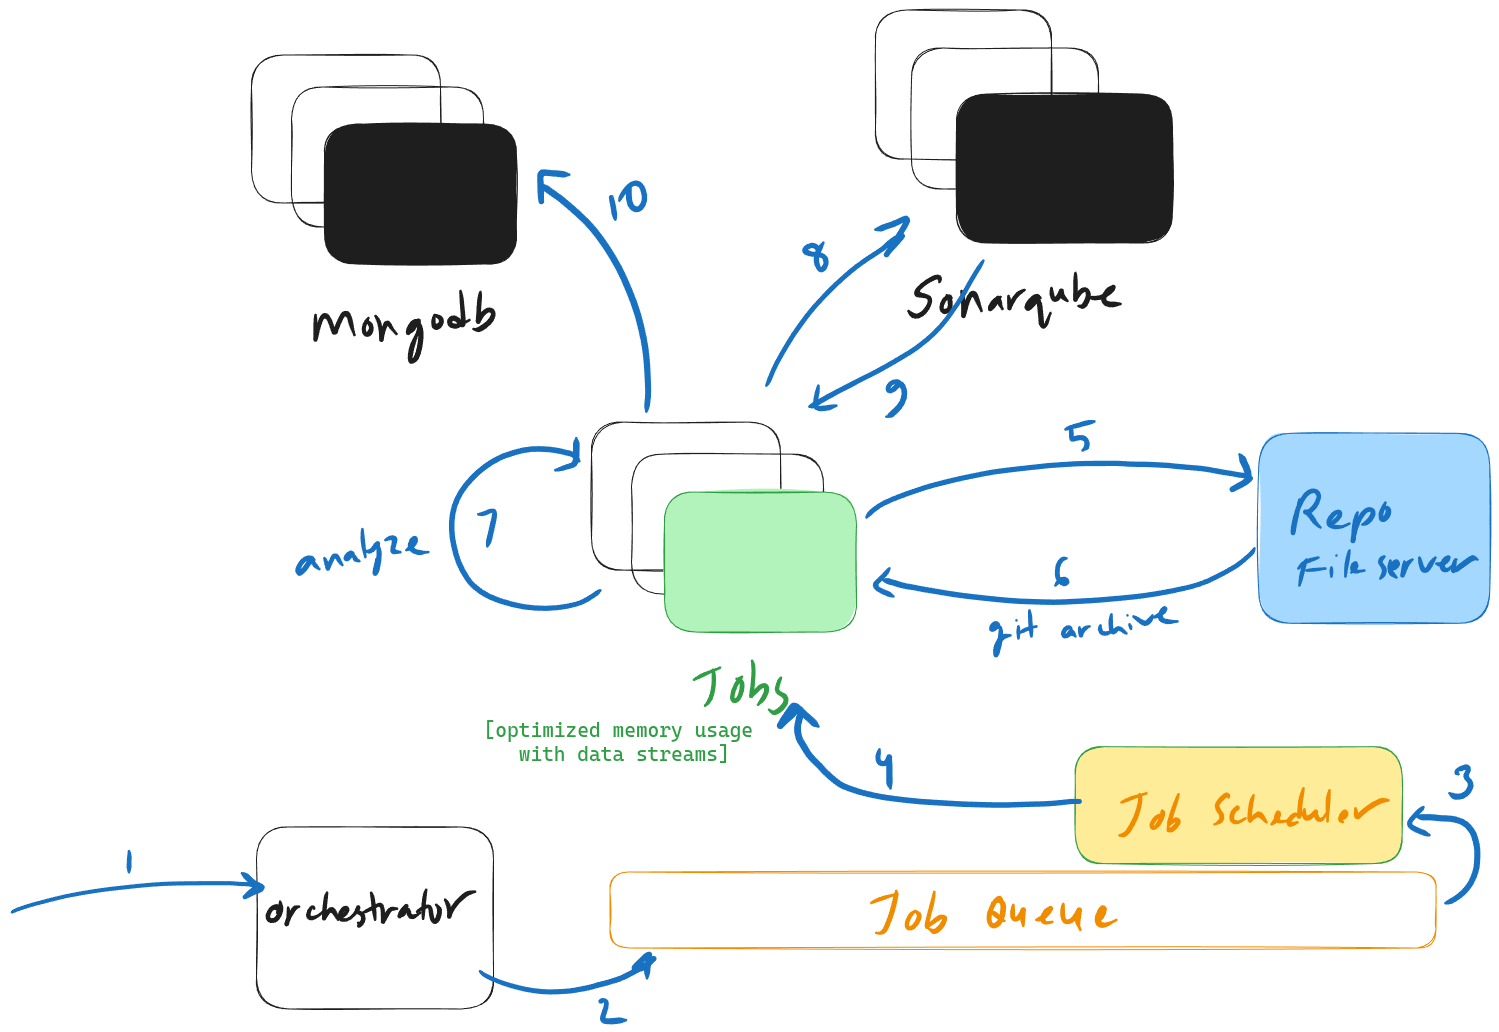 10
8
Mongodb
Sonarqube
9
5
7
analyze
Repo
File server
6
git archive
Jobs
[optimized memory usage
with data streams]
4
3
Job Scheduler
1
orchestrator
Job Queue
2